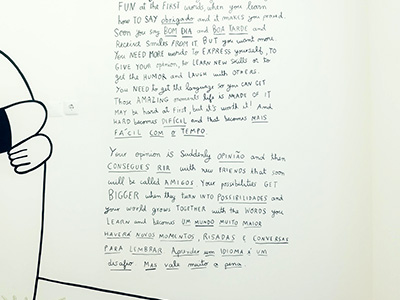 FUN at the FIRST words, when you learn
how to SAY obrigado and it makes you proud.
Soon you say BOM DIA and BOA TARDE and
Receive Smiles FROM IT. BUT you want more.
You NEED MORE words to EXPRESS yourself, TO
GIVE YOUR opinion, to LEARN NEW Skills or to
get the HUMOR and LAUGH with OTHERS.
YOU NEED TO get the language so you can GET
Those AMAZING moments life is MADE OF IT
MAY be hard at First, but it's worth it! And
HARD becomes DIFÍCIL and that becomes MAIS
FÁCIL COM O TEMPO.
Your opinion is Suddenly OPINIÃO and then
CONSEGUES RIR with new FRIENDS that soon
will be called AMIGOS. Your possibilities GET
BIGGER when they turn into POSSIBILIDADES and
your world grows TOGETHER with the WORDS you
LEARN and becomes UM MUNDO MUITO MAIOR
HAVERÁ NOVOS MOMENTOS, RISADAS E CONVERSAS
PARA LEMBRAR. Aprender um IDIOMA É UM
desafio. Mas vale muito a pena